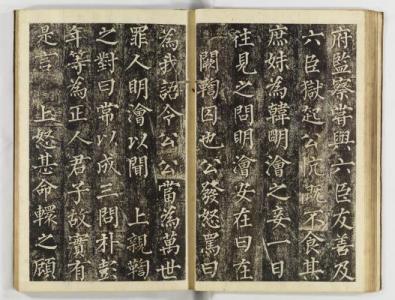 府監察等與六臣友善及
六臣獄起公忼慨不食其
庶妹為韓明澮之妾一日
徃見之問明澮安在曰在
闕鞫囚也公發怒罵曰
為我語令公公當為萬世
罪人明澮以聞 上親鞫
之對曰常以成三問朴彭
年等為正人君子故實有
是言 上怒甚命轘之顧